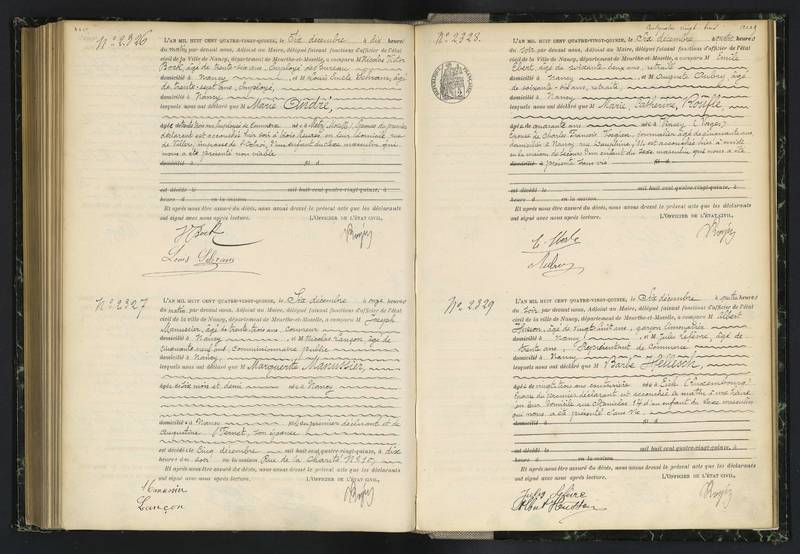 N° 2326
L'AN MIL HUIT CENT QUATRE-VINGT-QUINZE, le Six décembre à dix heures
du matin par devant nous, Adjoint au Maire, délégué faisant fonctions d'officier de l'état
civil de la Ville de Nancy, département de Meurthe-et-Moselle, a comparu M Nicolas Victor
Bock, âgé de trente six ans, employé de bureau
domicilié à Nancy, et M Louis Emile Lebrun, âgé
de trente-sept ans, employé,
domicilié à Nancy
lesquels nous ont déclaré que M Marie André,
âgée de trente trois ans, née à Metz, Moselle, Epouse du premier
déclarant est accouchée hier soir à trois heures en leur domicile, rue
de Villers, d'un enfant du sexe masculin qui
nous a été présenté non viable
domicilié à fil d
est décédé le mil huit cent quatre-vingt-quinze, à
heure d en la maison
Et après nous être assuré du décès, nous avons dressé le présent acte que les déclarants
ont signé avec nous après lecture. L'OFFICIER DE L'ÉTAT CIVIL,
V Bock
Louis Lebrun
N° 2327
L'AN MIL HUIT CENT QUATRE-VINGT-QUINZE, le Six décembre à onze heures
du matin par devant nous, Adjoint au Maire, délégué faisant fonctions d'officier de l'état
civil de la ville de Nancy, département de Meurthe-et-Moselle, a comparu M Joseph
Manussier, âgé de trente trois ans, couvreur
domicilié à Nancy, et M Nicolas Lançon, âgé de
quarante neuf ans, Commissionnaire public
domicilié à Nancy,
lesquels nous ont déclaré que M Marguerite Manussier,
âgée de Six mois et demi née à Nancy
domiciliée à Nancy fille du premier déclarant et de
Augustine Ternet, son épouse
est décédée le Cinq décembre mil huit cent quatre-vingt-quinze, à dix
heures du soir en la maison Rue de la Charité N° 10,
Et après nous être assuré du décès, nous avons dressé le présent acte que les déclarants
ont signé avec nous après lecture. L'OFFICIER DE L'ÉTAT CIVIL,
Manussier
Lançon
N° 2328
L'AN MIL HUIT CENT QUATRE-VINGT-QUINZE, le Six décembre à quatre heures
du soir par devant nous, Adjoint au Maire, délégué faisant fonctions d'officier de l'état
civil de la Ville de Nancy, département de Meurthe-et-Moselle, a comparu M Emile
âgé de soixante-deux ans, retraité
domicilié à Nancy, et M Auguste Aubry, âgé
de soixante-six ans, retraité,
domicilié à Nancy,
lesquels nous ont déclaré que M Marie Catherine
âgée de quarante ans née à Vincey (Vosges)
épouse de Charles François journalier âgé de cinquante ans
domiciliés à Nancy rue Dauphine, est accouchée hier à midi
en la maison de Secours d'un enfant du sexe masculin que nous a été
domicilié à présenté sans vie fil d
est décédé le mil huit cent quatre-vingt-quinze, à
heure d en la maison
Et après nous être assuré du décès, nous avons dressé le présent acte que les déclarants
ont signé avec nous après lecture. L'OFFICIER DE L'ÉTAT CIVIL,
Aubry
N° 2329
L'AN MIL HUIT CENT QUATRE-VINGT-QUINZE, le Six décembre à quatre heures
du soir par devant nous, Adjoint au Maire, délégué faisant fonctions d'officier de l'état
civil de la ville de Nancy, département de Meurthe-et-Moselle, a comparu M Albert
Husson, âgé de vingt huit ans, garçon limonadier
domicilié à Nancy, et M Jules Lefèvre, âgé de
trente ans, Représentant de Commerce
domicilié à Nancy
lesquels nous ont déclaré que M Barbe
âgée de vingt six ans couturière née à Eich (Luxembourg)
épouse du premier déclarant est accouchée ce matin à une heure
en leur domicile rue Stanislas d'un enfant du sexe masculin
qui nous a été présenté sans vie
domicilié à fil d
est décédé le mil huit cent quatre-vingt-quinze, à
heure d en la maison
Et après nous être assuré du décès, nous avons dressé le présent acte que les déclarants
ont signé avec nous après lecture. L'OFFICIER DE L'ÉTAT CIVIL,
Jules Lefèvre
Albert Husson